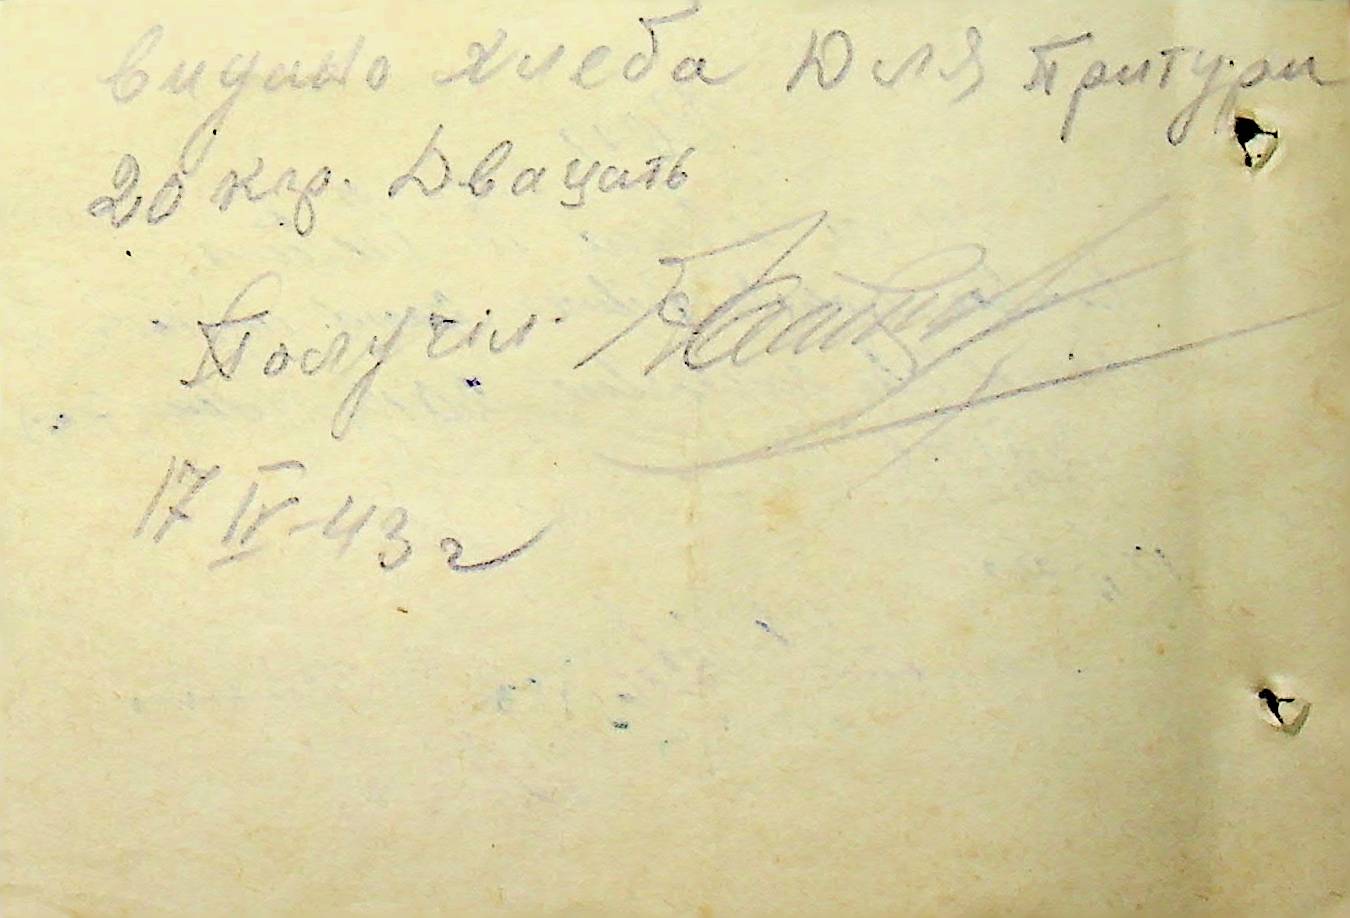 видано хлеба Для Притури
20 кгр. Двацать
Получіл
17 IV-43 г